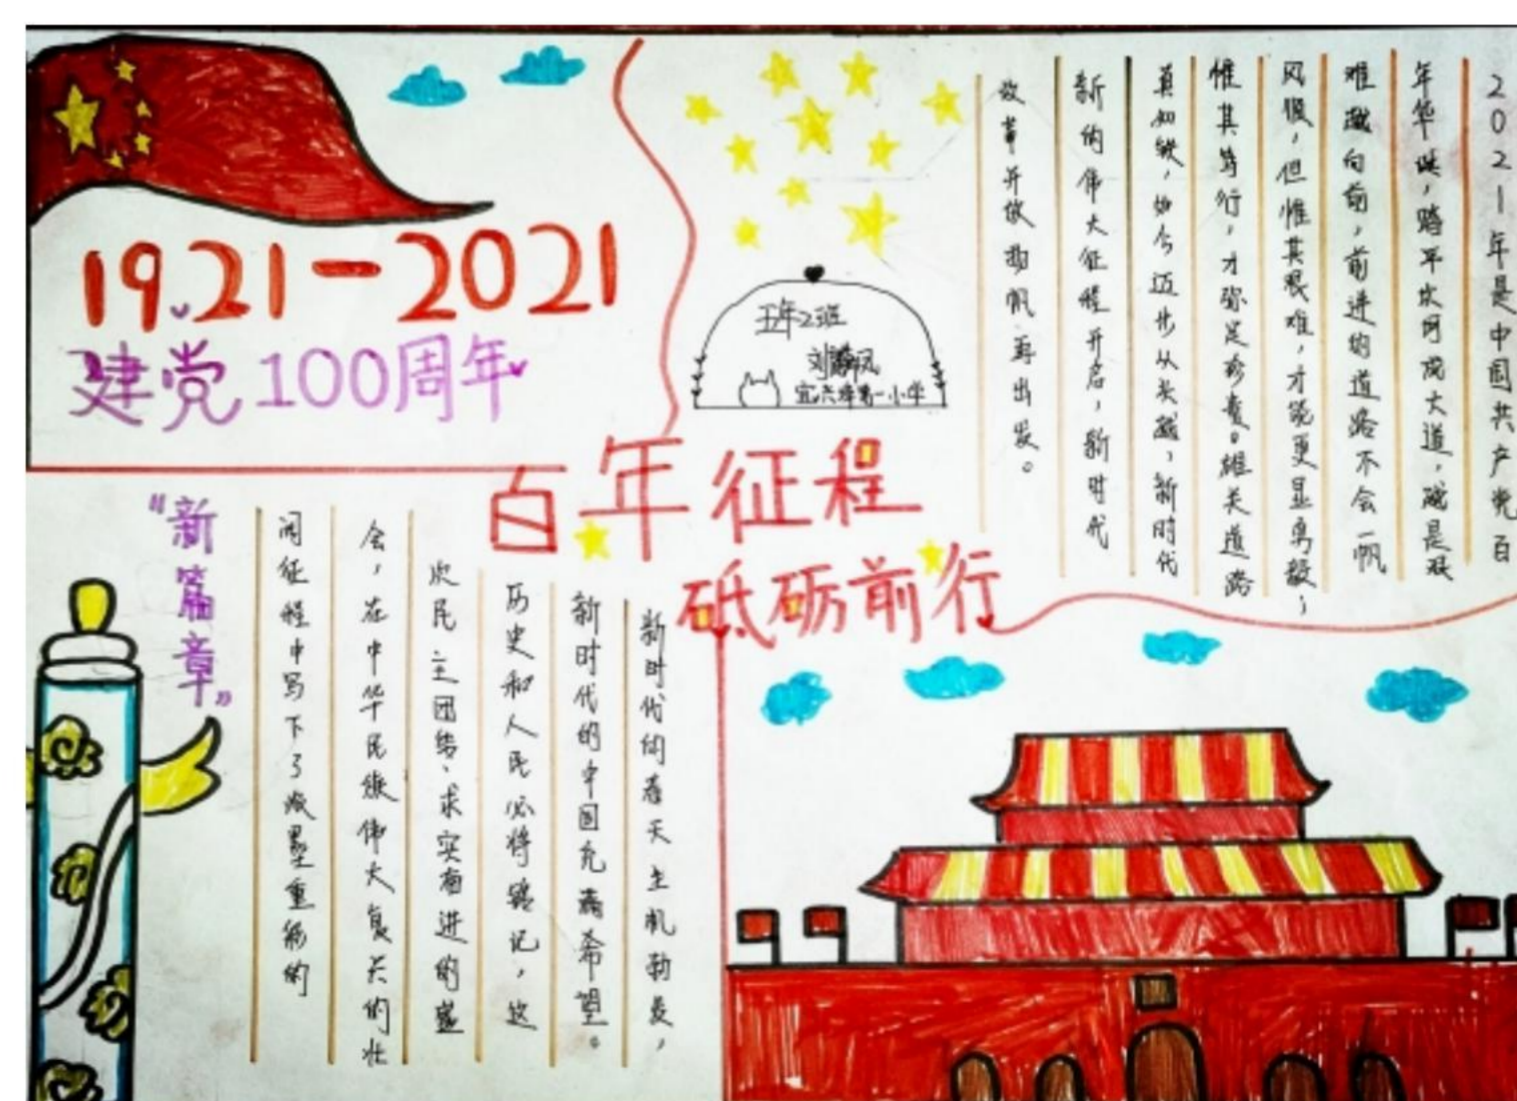 1921-2021
建党100周年
五年2班
百年征程
砥砺前行
2021年是中国共产党百
年华诞，踏平坎坷成大道，越是艰
难越向前，前进的道路不会一帆
风顺，但惟其艰难，才能更显勇毅；
惟其笃行，才弥足珍贵。雄关道路
真如铁，如今迈步从头越，新时代
新的伟大征程开启，新时代
改革开放扬帆再出发。
“新篇章”
新时代的春天生机勃发，
新时代的中国充满希望。
历史和人民必将铭记，这
次民主团结、求实奋进的盛
会，在中华民族伟大复兴的壮
阔征程中写下了浓墨重彩的